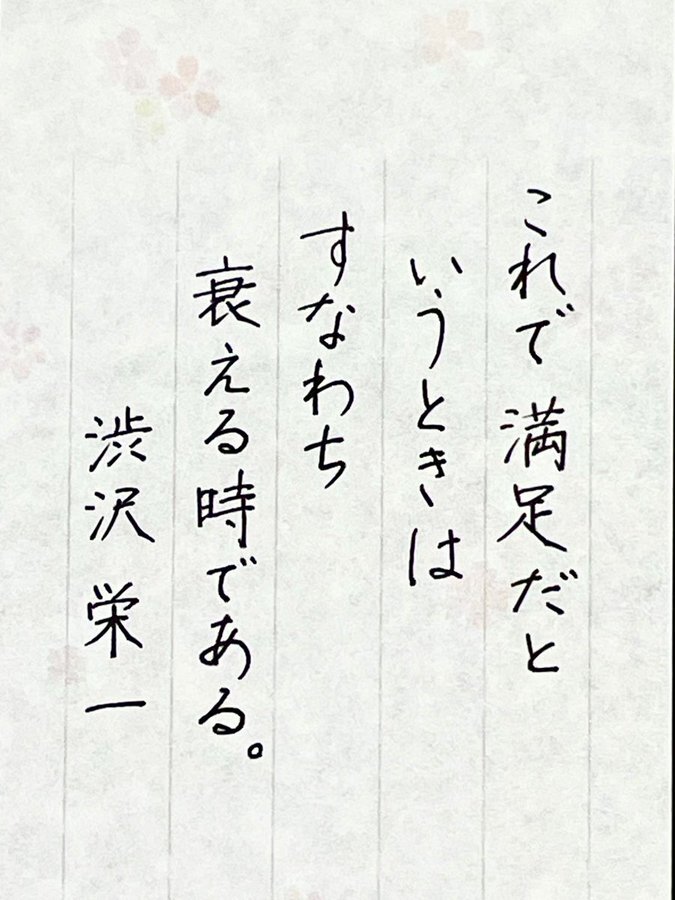 これで満足だと
いうときは
すなわち
衰える時である。
渋沢栄一